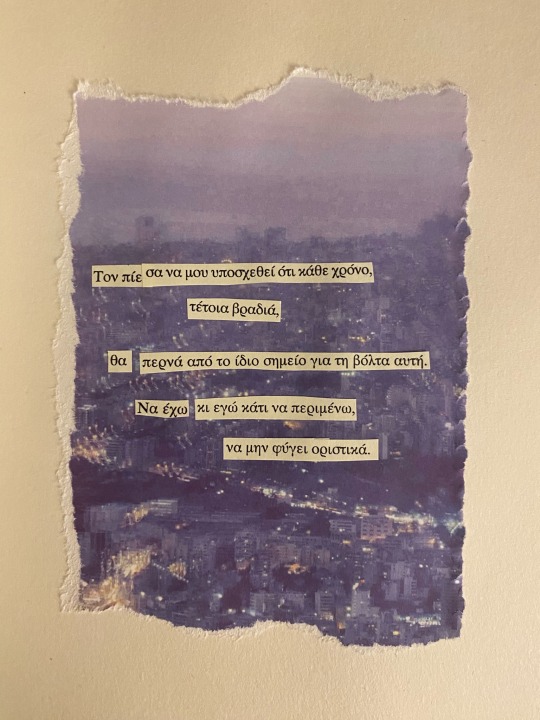 Τον πίεσα να μου υποσχεθεί ότι κάθε χρόνο,
τέτοια βραδιά,
θα περνά από το ίδιο σημείο για τη βόλτα αυτή.
Να έχω κι εγώ κάτι να περιμένω,
να μην φύγει οριστικά.